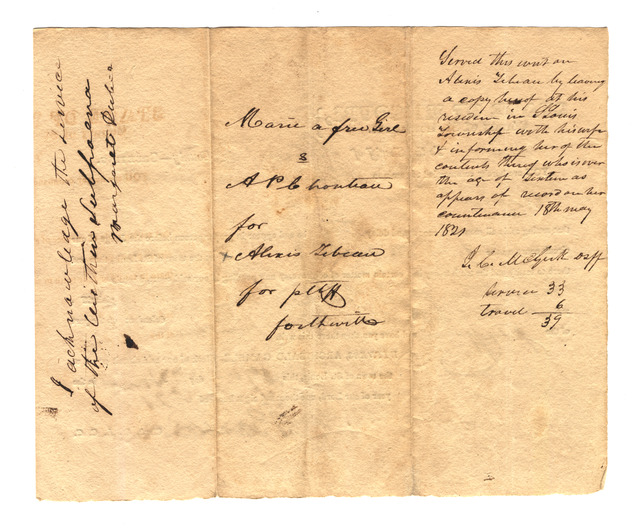 I acknowledge the service
of the within Subpoena
Margaret
Marie a free Girl
s
A P Chouteau
for
+ Alexis
for pltff
forthwith
Served this writ on
Alexis by leaving
a copy at his
residen in S Louis
Township with his wife
& informing her of the
contents who is over
the age of sixteen as
appears of record on her
countenance 18th may
1821
McGuk Dsff
service 33
travel 6
39